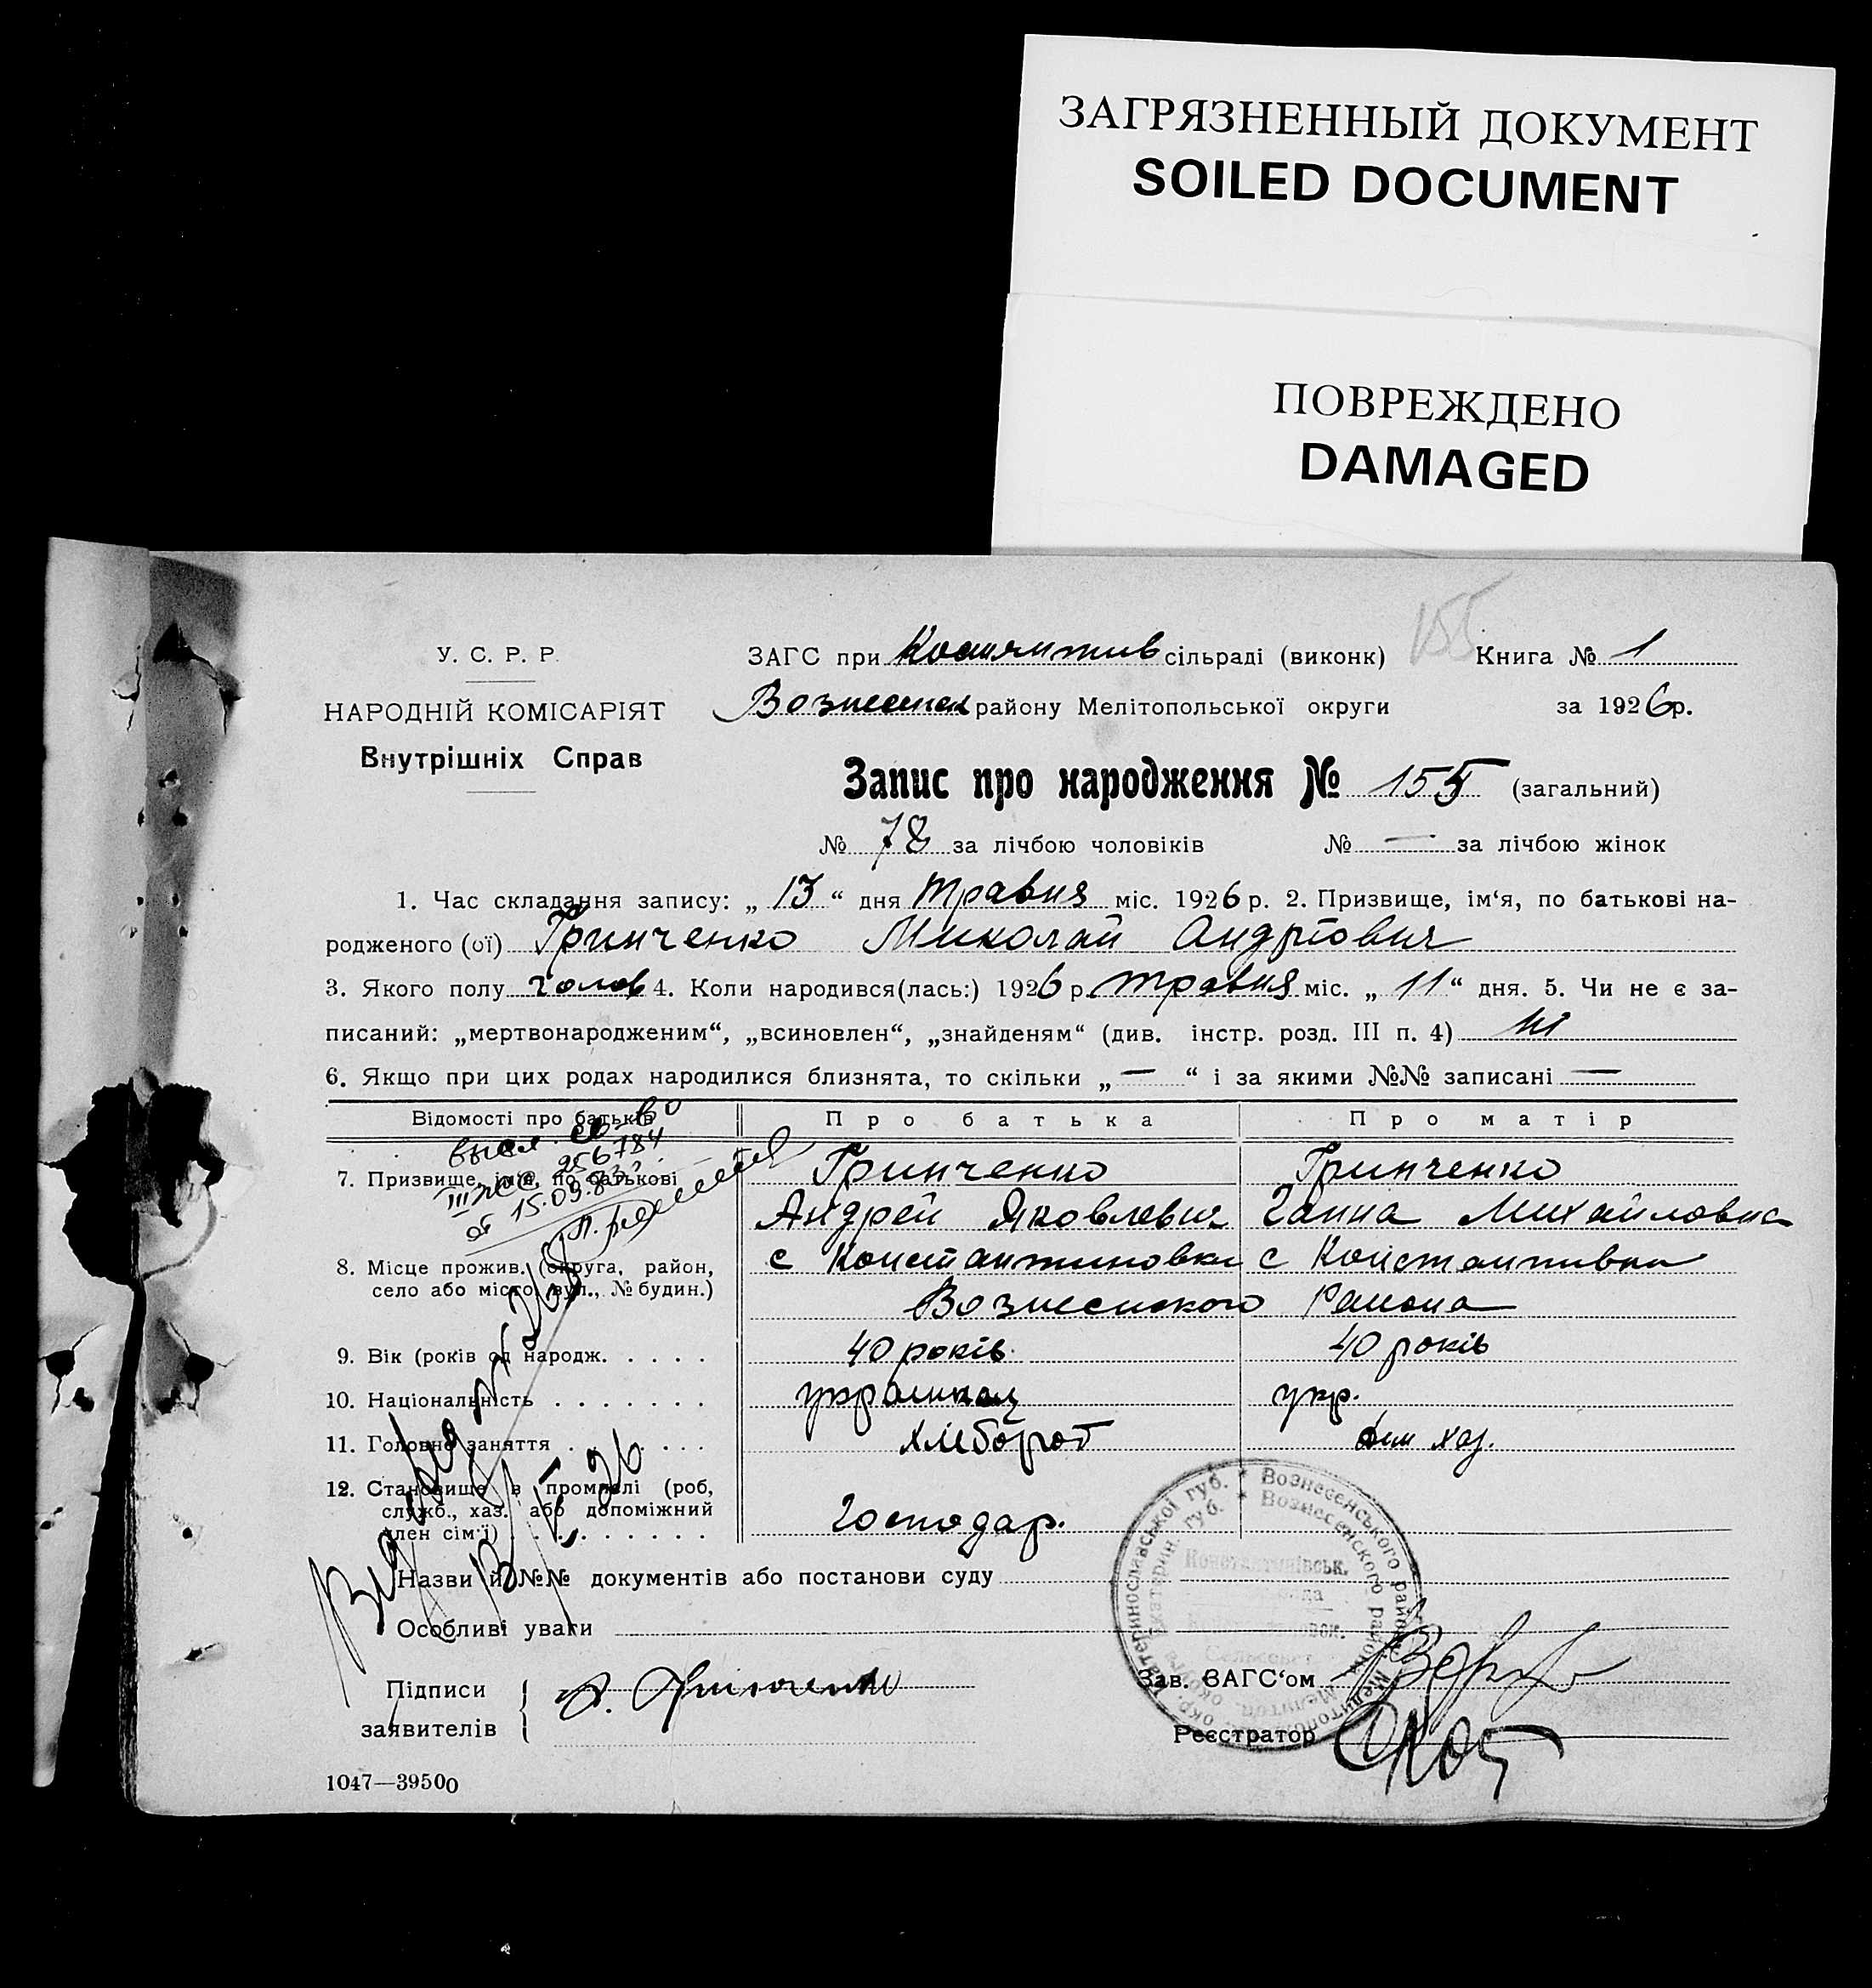 ЗАГРЯЗНЕННЫЙ ДОКУМЕНТ
SOILED DOCUMENT
ПОВРЕЖДЕНО
DAMAGED
155
У. С. Р. Р.
НАРОДНІЙ КОМІСАРІЯТ
Внутрішніх Справ
ЗАГС при сільраді (виконк) Книга № 1
Вознесенск району Мелітопольської округи за 1926 р.
Запис про народження № 155 (загальний)
№ 78 за лічбою чоловіків № — за лічбою жінок
1. Час складання запису: „ 13 “ дня травня міс. 1926 р. 2. Призвище, ім‘я, по батькові на-
родженого (ої) Гринченко Миколай Андрійович
3. Якого полу чолов 4. Коли народився(лась:) 1926 р. травня міс. „ 11 “ дня. 5. Чи не є за-
писаний: „мертвонародженим“, „всиновлен“, „знайденям“ (див. інстр. розд. III п. 4) ні
6. Якщо при цих родах народилися близнята, то скільки „ — “ і за якими №№ записані —
Відомості про батьків Про батька Про матір
7. Призвище, ім‘я, по батькові Гринченко Гринченко
Андрей Яковлевич Ганна Михайловна
8. Місце прожив. (округа, район, с Константиновки с Константивки
село або місто, вул., № будин.) Вознесенского Района
9. Вік (років од народж. . . . . 40 років 40 років
10. Національність . . . . . . . украинец укр.
11. Головне заняття . . . . . . хлебороб дом хаз.
12. Становище в промислі (роб,
служб., хаз. або допоміжний
член сім‘ї) . . . . . . . . . Господар.
Назви й №№ документів або постанови суду
Особливі уваги
Підписи
заявителів
А. Гринченко
Зав. ЗАГС‘ом
Реєстратор
1047—39500
256784
III
от 15.09.83
26
Вознесенського району
Вознесенского района
Константинівськ.